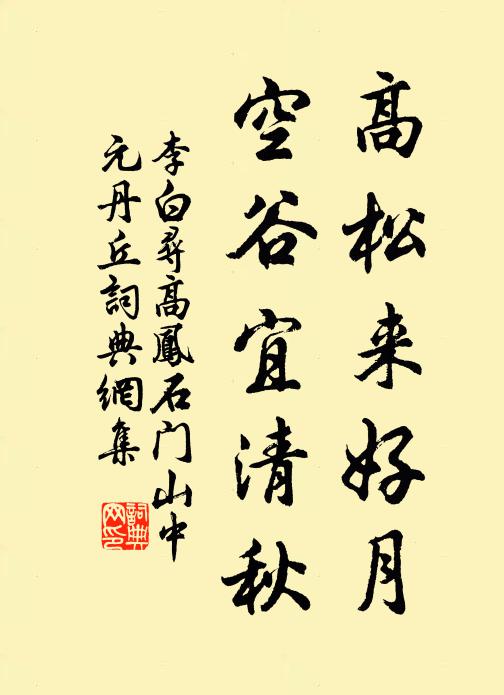 高松来好月
空谷宜清秋
李白尋高鳳石门山中
元丹丘詞典網集
詞典
网印